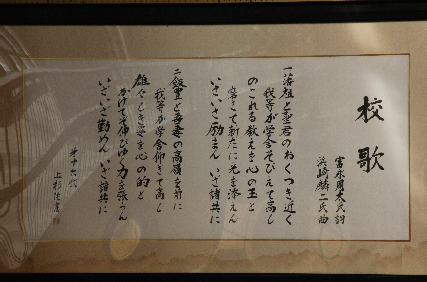 校歌
富永周太氏詞
浜崎勝二氏曲
一 藩祖と聖君のおくつき近く
我等が学舎そびえて高し
のこれる教えを心の玉と
磨きて新たに光を添えん
いざいざ励まん いざ諸共に
二 飯豊と吾妻の高嶺を前に
我等が学舎仰ぎて高し
雄々しき姿を心の的と
かけてぞ伸びゆく力を張らん
いざいざ勤めん いざ諸共に
第十六代
上杉